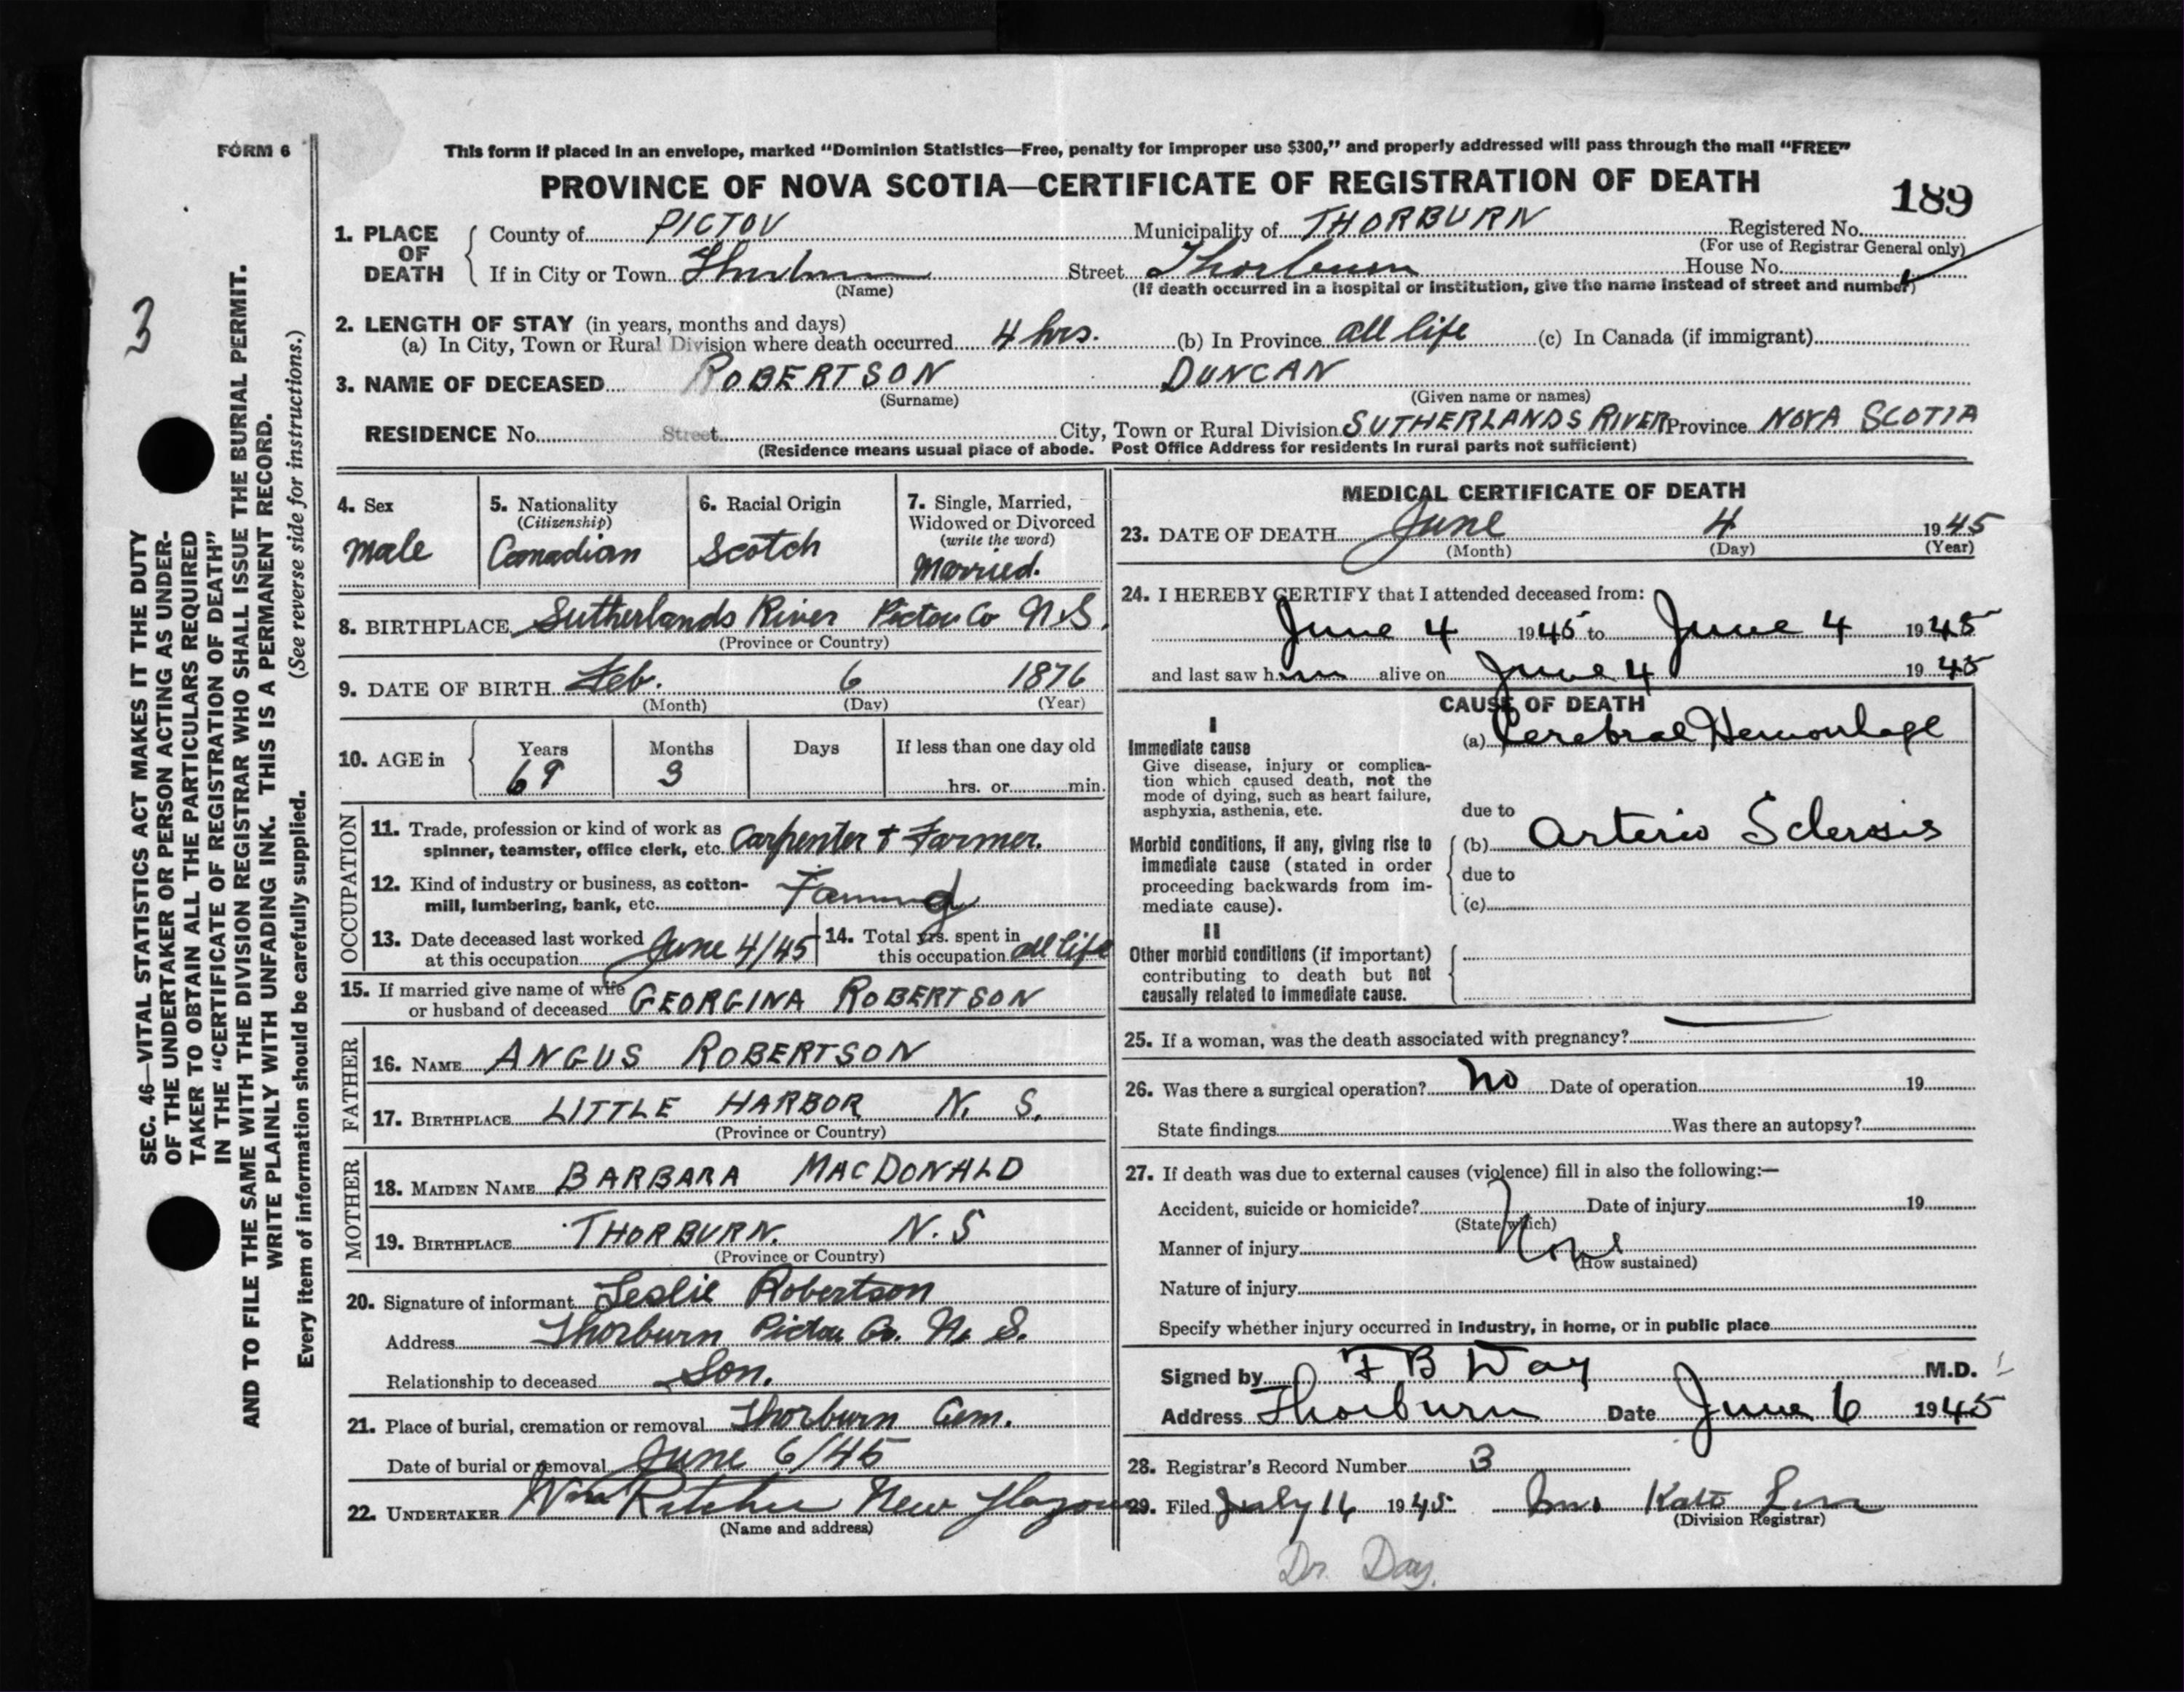 FORM 6
This form if placed in an envelope, marked “Dominion Statistics—Free, penalty for improper use $300,” and properly addressed will pass through the mail “FREE”
PROVINCE OF NOVA SCOTIA—CERTIFICATE OF REGISTRATION OF DEATH
189
1. PLACE OF DEATH
County of PICTOU Municipality of THORBURN Registered No.
(For use of Registrar General only)
If in City or Town Thorburn Street Thorburn House No.
(Name) (If death occurred in a hospital or institution, give the name instead of street and number)
2. LENGTH OF STAY (in years, months and days)
(a) In City, Town or Rural Division where death occurred 4 hrs. (b) In Province all life (c) In Canada (if immigrant)
3. NAME OF DECEASED ROBERTSON DUNCAN
(Surname) (Given name or names)
RESIDENCE No. Street City, Town or Rural Division SUTHERLANDS RIVER Province NOVA SCOTIA
(Residence means usual place of abode. Post Office Address for residents in rural parts not sufficient)
4. Sex
Male
5. Nationality
(Citizenship)
Canadian
6. Racial Origin
Scotch
7. Single, Married,
Widowed or Divorced
(write the word)
Married.
8. BIRTHPLACE Sutherlands River Pictou Co N.S.
(Province or Country)
9. DATE OF BIRTH Feb. 6 1876
(Month) (Day) (Year)
10. AGE in
Years Months Days If less than one day old
69 3
hrs. or min.
OCCUPATION
11. Trade, profession or kind of work as
spinner, teamster, office clerk, etc. Carpenter + Farmer.
12. Kind of industry or business, as cotton-
mill, lumbering, bank, etc. Farming
13. Date deceased last worked
at this occupation June 4/45
14. Total yrs. spent in
this occupation all life
15. If married give name of wife
or husband of deceased GEORGINA ROBERTSON
FATHER
16. NAME ANGUS ROBERTSON
17. BIRTHPLACE LITTLE HARBOR N. S.
(Province or Country)
MOTHER
18. MAIDEN NAME BARBARA MACDONALD
19. BIRTHPLACE THORBURN. N.S
(Province or Country)
20. Signature of informant Leslie Robertson
Address Thorburn Pictou Co. N. S.
Relationship to deceased Son.
21. Place of burial, cremation or removal Thorburn Cem.
Date of burial or removal June 6/45
22. UNDERTAKER Wm Ritchie New Glasgow
(Name and address)
MEDICAL CERTIFICATE OF DEATH
23. DATE OF DEATH June 4 1945
(Month) (Day) (Year)
24. I HEREBY CERTIFY that I attended deceased from:
June 4 1945 to June 4 1945
and last saw him alive on June 4 1945
CAUSE OF DEATH
I
Immediate cause
Give disease, injury or complica-
tion which caused death, not the
mode of dying, such as heart failure,
asphyxia, asthenia, etc.
(a) Cerebral Hemorrhage
due to
Morbid conditions, if any, giving rise to
immediate cause (stated in order
proceeding backwards from im-
mediate cause).
(b) Arterio Sclerosis
due to
(c)
II
Other morbid conditions (if important)
contributing to death but not
causally related to immediate cause.
25. If a woman, was the death associated with pregnancy?
26. Was there a surgical operation? No Date of operation 19
State findings Was there an autopsy?
27. If death was due to external causes (violence) fill in also the following:—
Accident, suicide or homicide? Date of injury 19
(State which)
Manner of injury None
(How sustained)
Nature of injury
Specify whether injury occurred in industry, in home, or in public place
Signed by F B Day M.D.
Address Thorburn Date June 6 1945
28. Registrar's Record Number 3
29. Filed July 16 1945 Mrs Kate
(Division Registrar)
Dr. Day.
3
SEC. 46—VITAL STATISTICS ACT MAKES IT THE DUTY
OF THE UNDERTAKER OR PERSON ACTING AS UNDER-
TAKER TO OBTAIN ALL THE PARTICULARS REQUIRED
IN THE “CERTIFICATE OF REGISTRATION OF DEATH”
AND TO FILE THE SAME WITH THE DIVISION REGISTRAR WHO SHALL ISSUE THE BURIAL PERMIT.
WRITE PLAINLY WITH UNFADING INK. THIS IS A PERMANENT RECORD.
Every item of information should be carefully supplied. (See reverse side for instructions.)